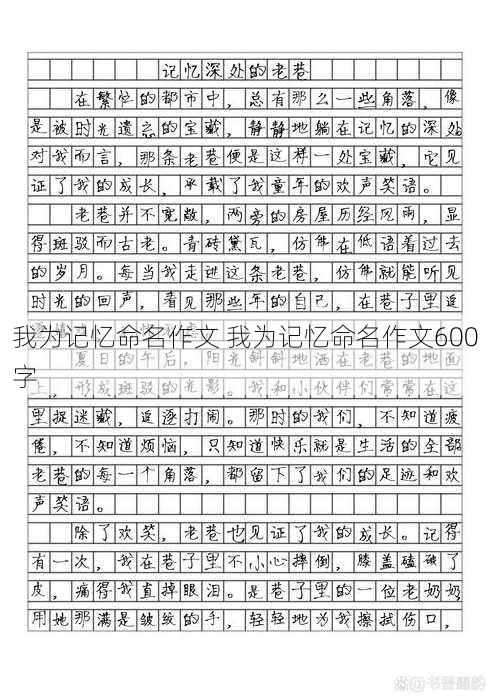 记忆深处的老巷
在繁忙的都市中，总有那么一些角落，像
是被时光遗忘的宝藏，静静地躺在记忆的深处
对我而言，那条老巷便是这样一处宝藏，它见
证了我的成长，承载了我童年的欢声笑语。
老巷并不宽敞，两旁的房屋历经风雨，显
得斑驳而古老。青砖黛瓦，仿佛在低语着过去
的岁月。每当我走进这条老巷，仿佛就能听见
时光的回声，看见那些年的自己，在巷子里追
我为记忆命名作文 我为记忆命名作文600
夏日的午后，阳光斜斜地洒在老巷的地面
字
上，形成斑驳的光影。我和小伙伴们常常在这
里捉迷藏，追逐打闹。那时的我们，不知道疲
倦，不知道烦恼，只知道快乐就是生活的全部
老巷的每一个角落，都留下了我们的足迹和欢
声笑语。
除了欢笑，老巷也见证了我的成长。记得
有一次，我在巷子里不小心摔倒，膝盖磕破了
皮，痛得我直掉眼泪。是巷子里的一位老奶奶
用她那满是皱纹的手，轻轻地为我擦拭伤口，